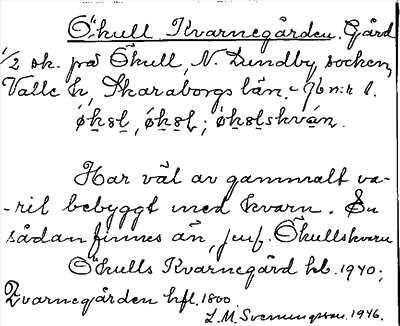 Ökull Kvarnegården. Gård
1/2 sk. på Ökull, N. Lundby socken,
Valle h, Skaraborgs län. - Jb n:r 1.
økəl, økəl; økəlskván.
Har väl av gammalt va-
-rit bebyggt med kvarn. En
sådan finnes än, jmf. Ökullskvarn
Ökulls Kvarnegård kb. 1940;
Qvarnegården hfl. 1800.
L.M. Svenungsson. 1946.